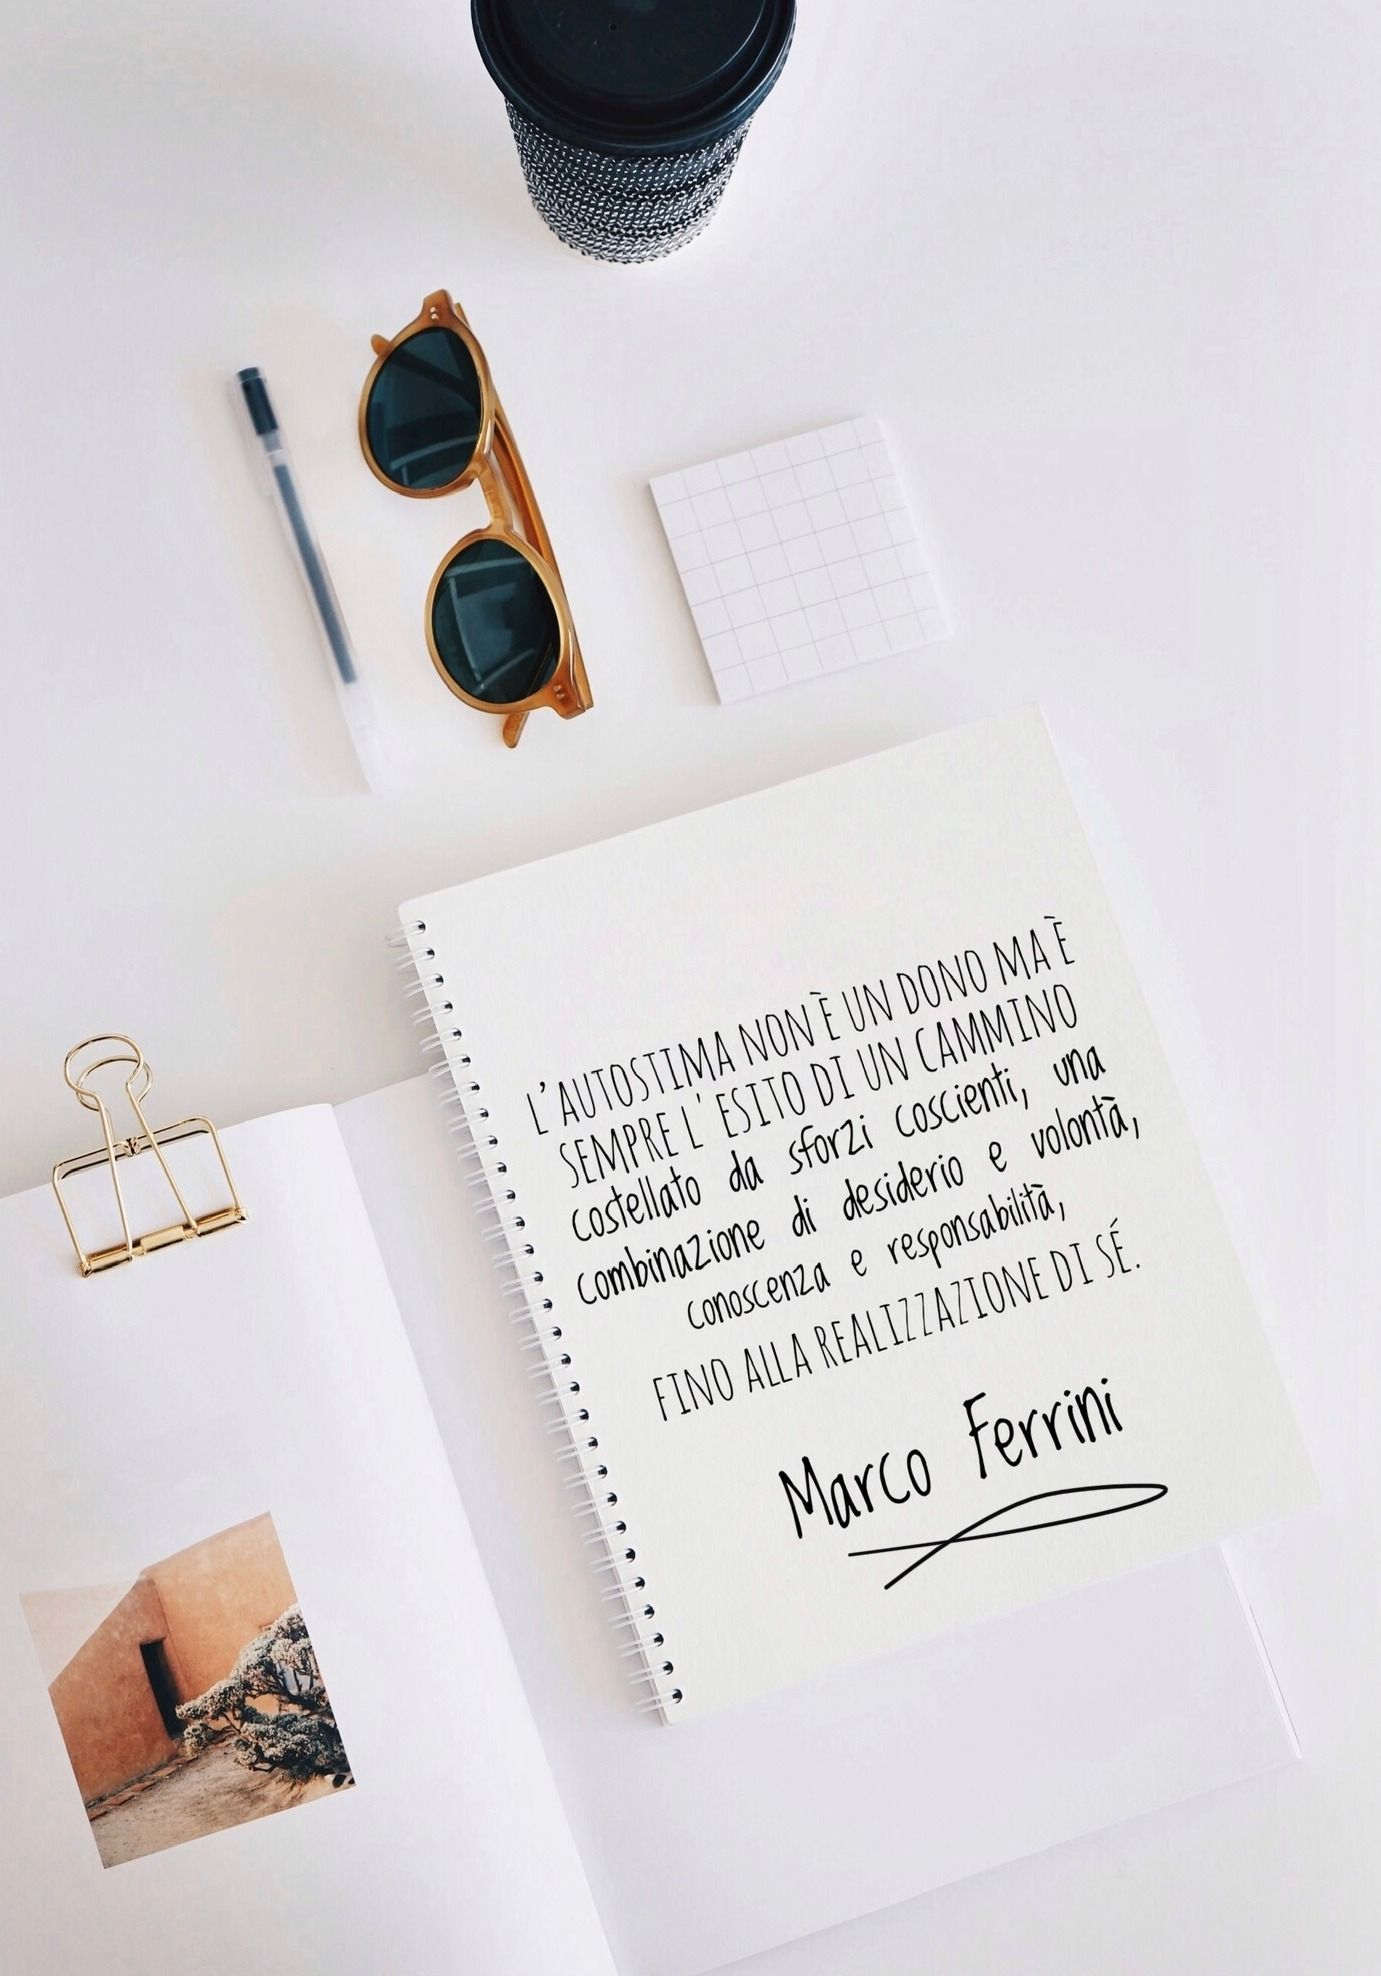 L'AUTOSTIMA NON È UN DONO MA È
SEMPRE L'ESITO DI UN CAMMINO
costellato da sforzi coscienti, una
combinazione di desiderio e volontà,
conoscenza e responsabilità,
FINO ALLA REALIZZAZIONE DI SÉ.
Marco Ferrini